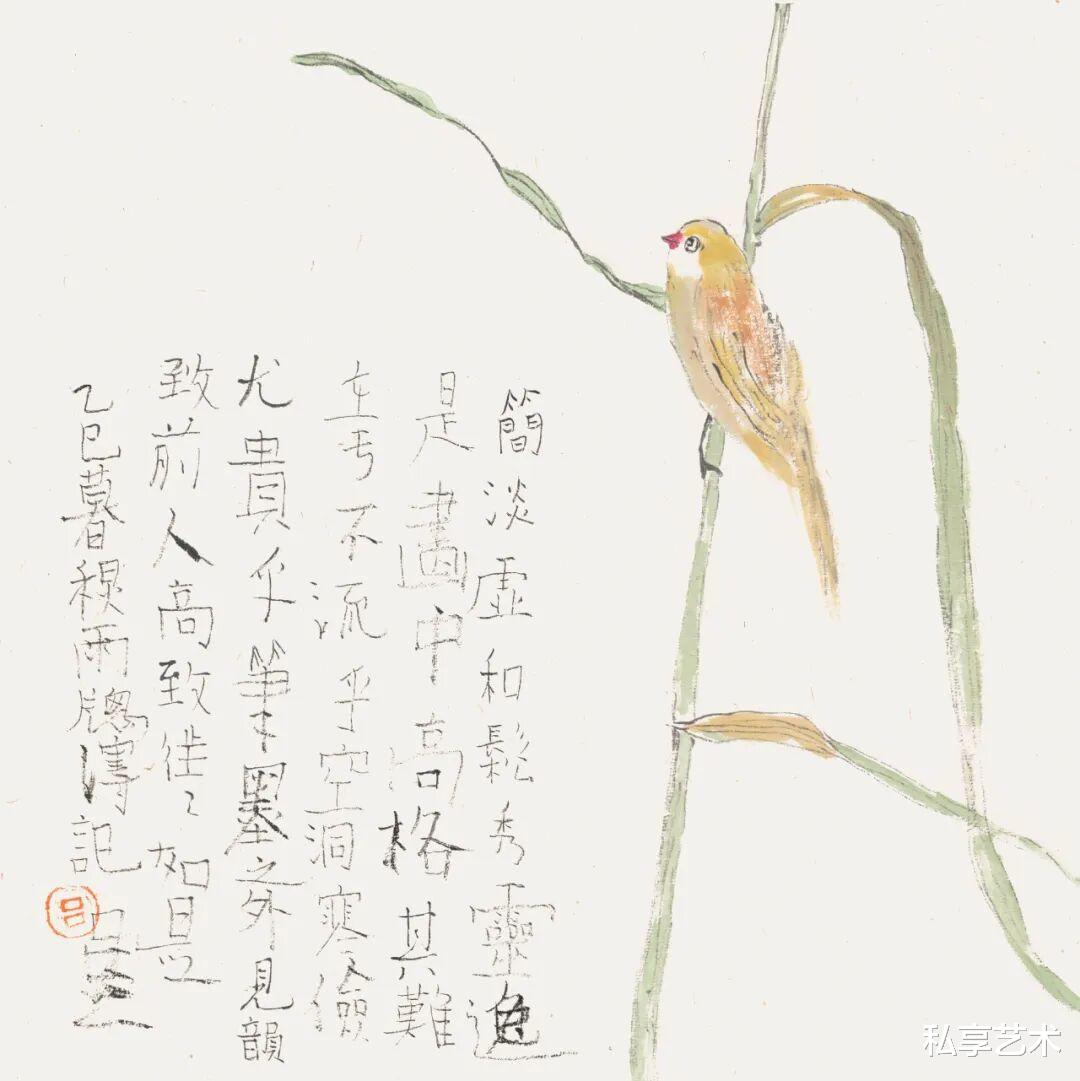 簡淡虛和鬆秀靈逸
是畫中高格其難
在乎不流乎空洞寒儉
尤貴乎筆墨之外見韻
致前人高致往往如是
乙巳暮穐雨牕澐記
呂
私享艺术